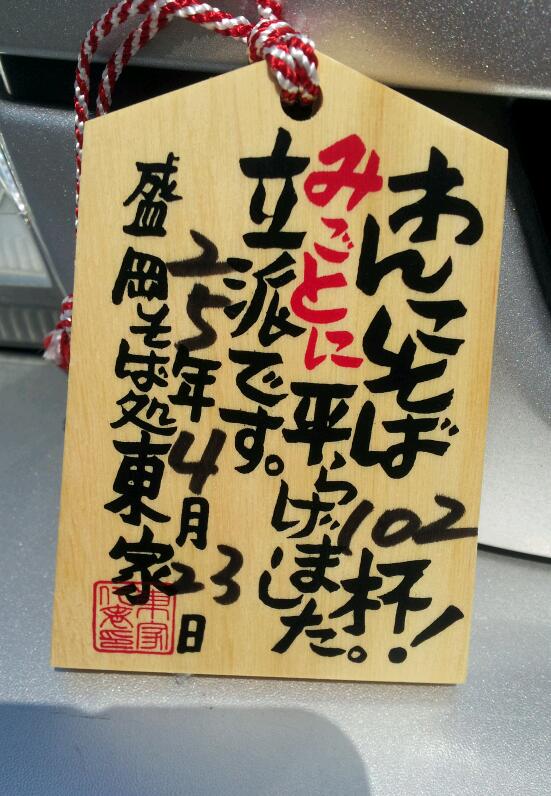 わんこそば102杯!
みごとに平らげました。
立派です。
25年4月23日
盛岡そば処東家